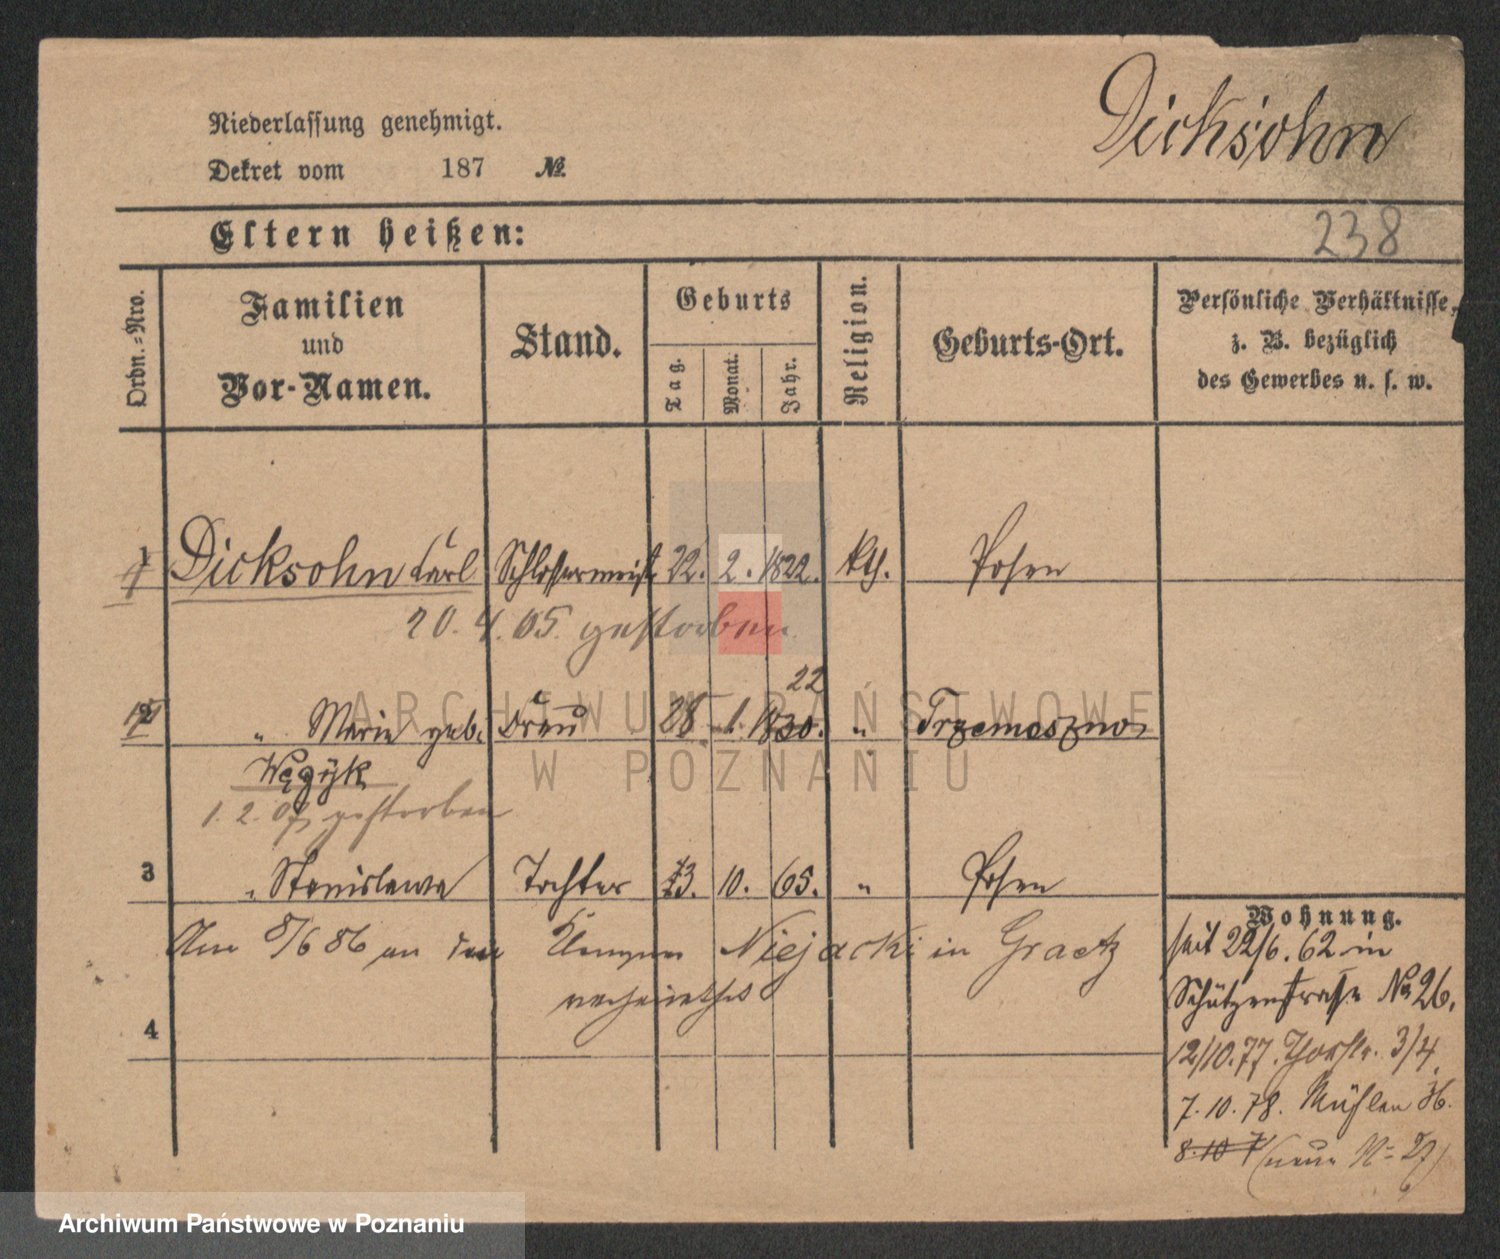 Dicksohn
Niederlassung genehmigt.
Dekret vom 187 №
238
Eltern heißen:
Ordn.-Nro.
Familien und Vor-Namen.
Stand.
Geburts
Tag.
Monat.
Jahr.
Religion.
Geburts-Ort.
Persönliche Verhältnisse,
z. B. bezüglich
des Gewerbes u. s. w.
1 Dicksohn Carl Schlossermeist. 22. 2. 1822. kth. Posen
20. 4. 05. gestorben
22
2 " Marie geb. Frau 28 1. 1830. " Trzemeszno
Węzyk
1. 2. 07 gestorben
3 " Stanislawa Tochter 13. 10. 65. " Posen
Am 8/6 86 an den Klempner Niejacki in Graetz
verheirathet
4
Wohnung.
seit 22/6. 62 in
Schützenstrasse No 26.
12/10. 77. Thorstr. 3/4.
7. 10. 78. Mühlen 36.
8. 10 7 (neue N= 27)
ARCHIWUM PAŃSTWOWE
W POZNANIU
Archiwum Państwowe w Poznaniu